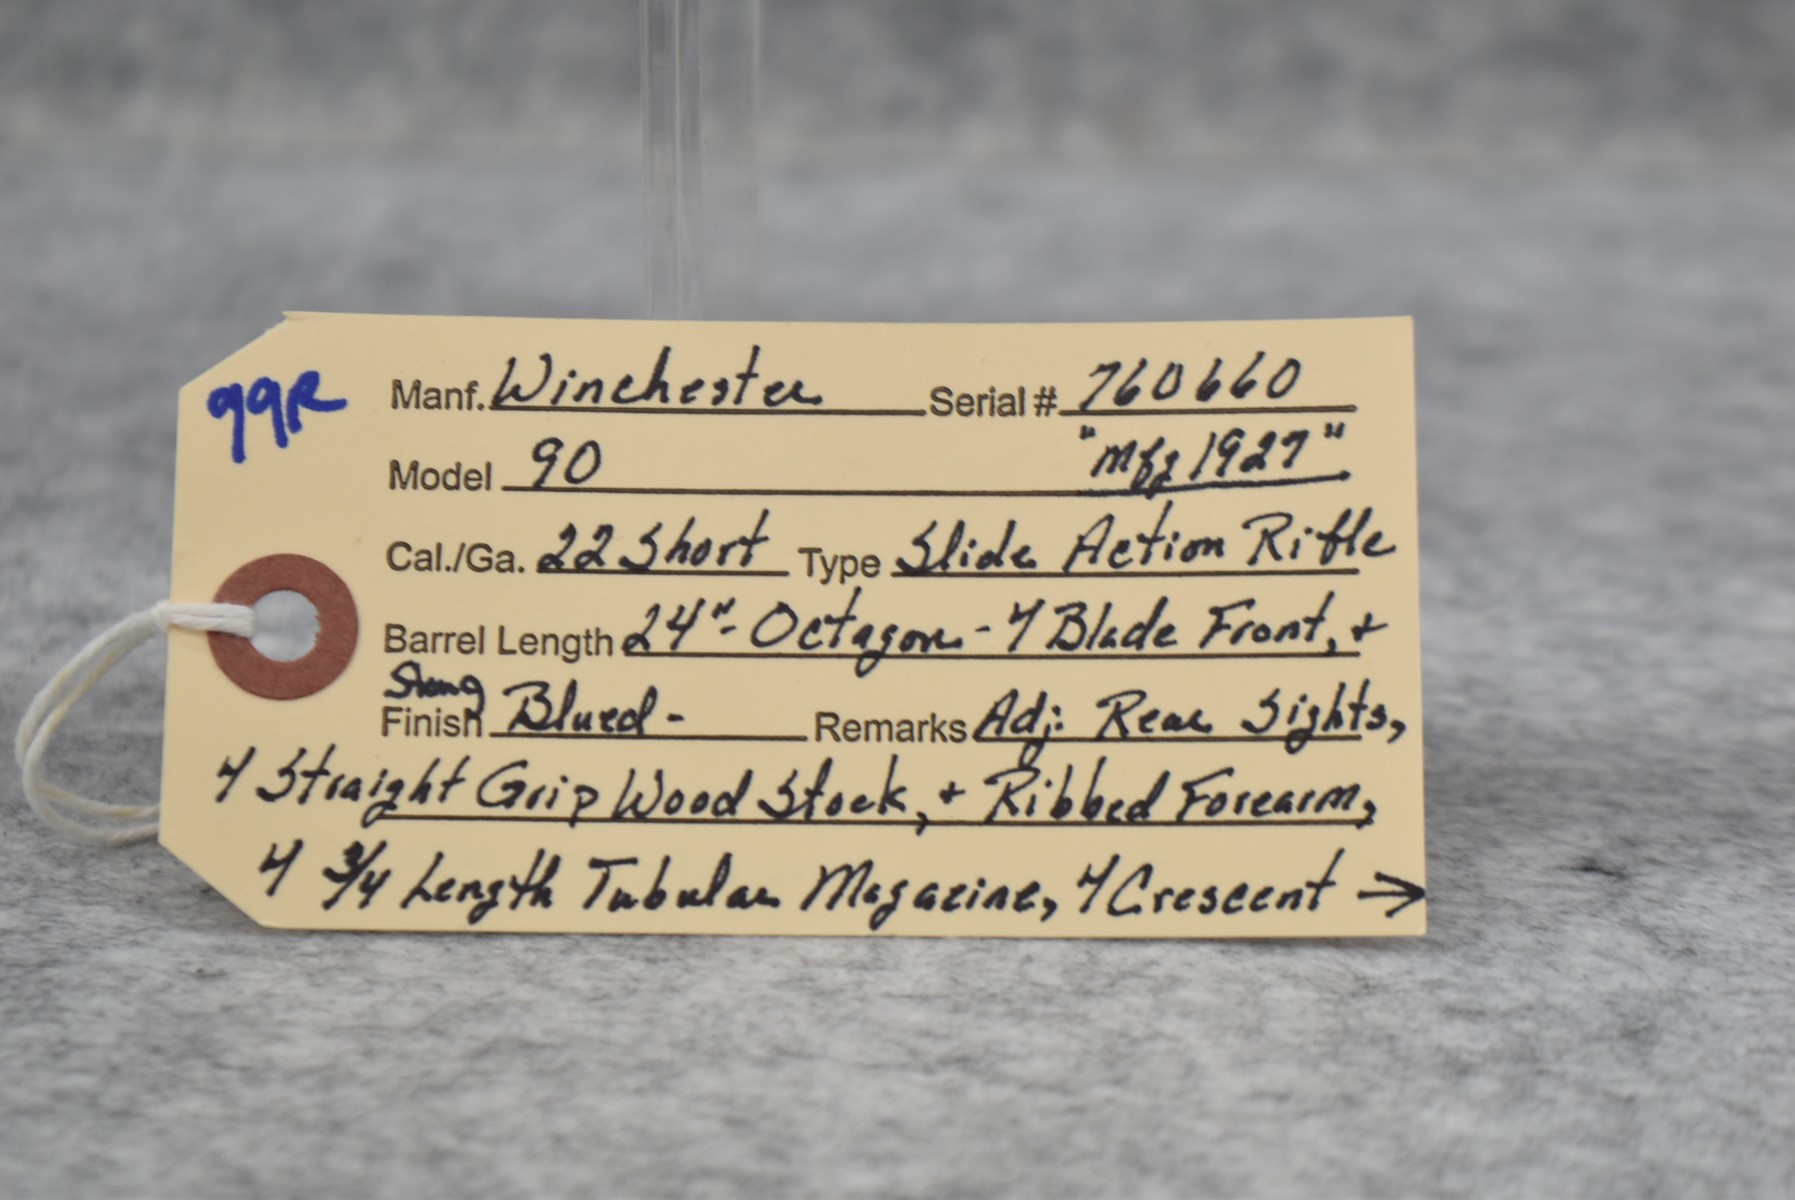 99R
Manf. Winchester Serial # 760660
Model 90 "Mfg 1927"
Cal./Ga. 22 Short Type Slide Action Rifle
Barrel Length 24"- Octagon - 4 Blade Front, +
Strong
Finish Blued - Remarks Adj: Rear Sights,
4 Straight Grip Wood Stock, + Ribbed Forearm,
4 3/4 Length Tubular Magazine, 4 Crescent →